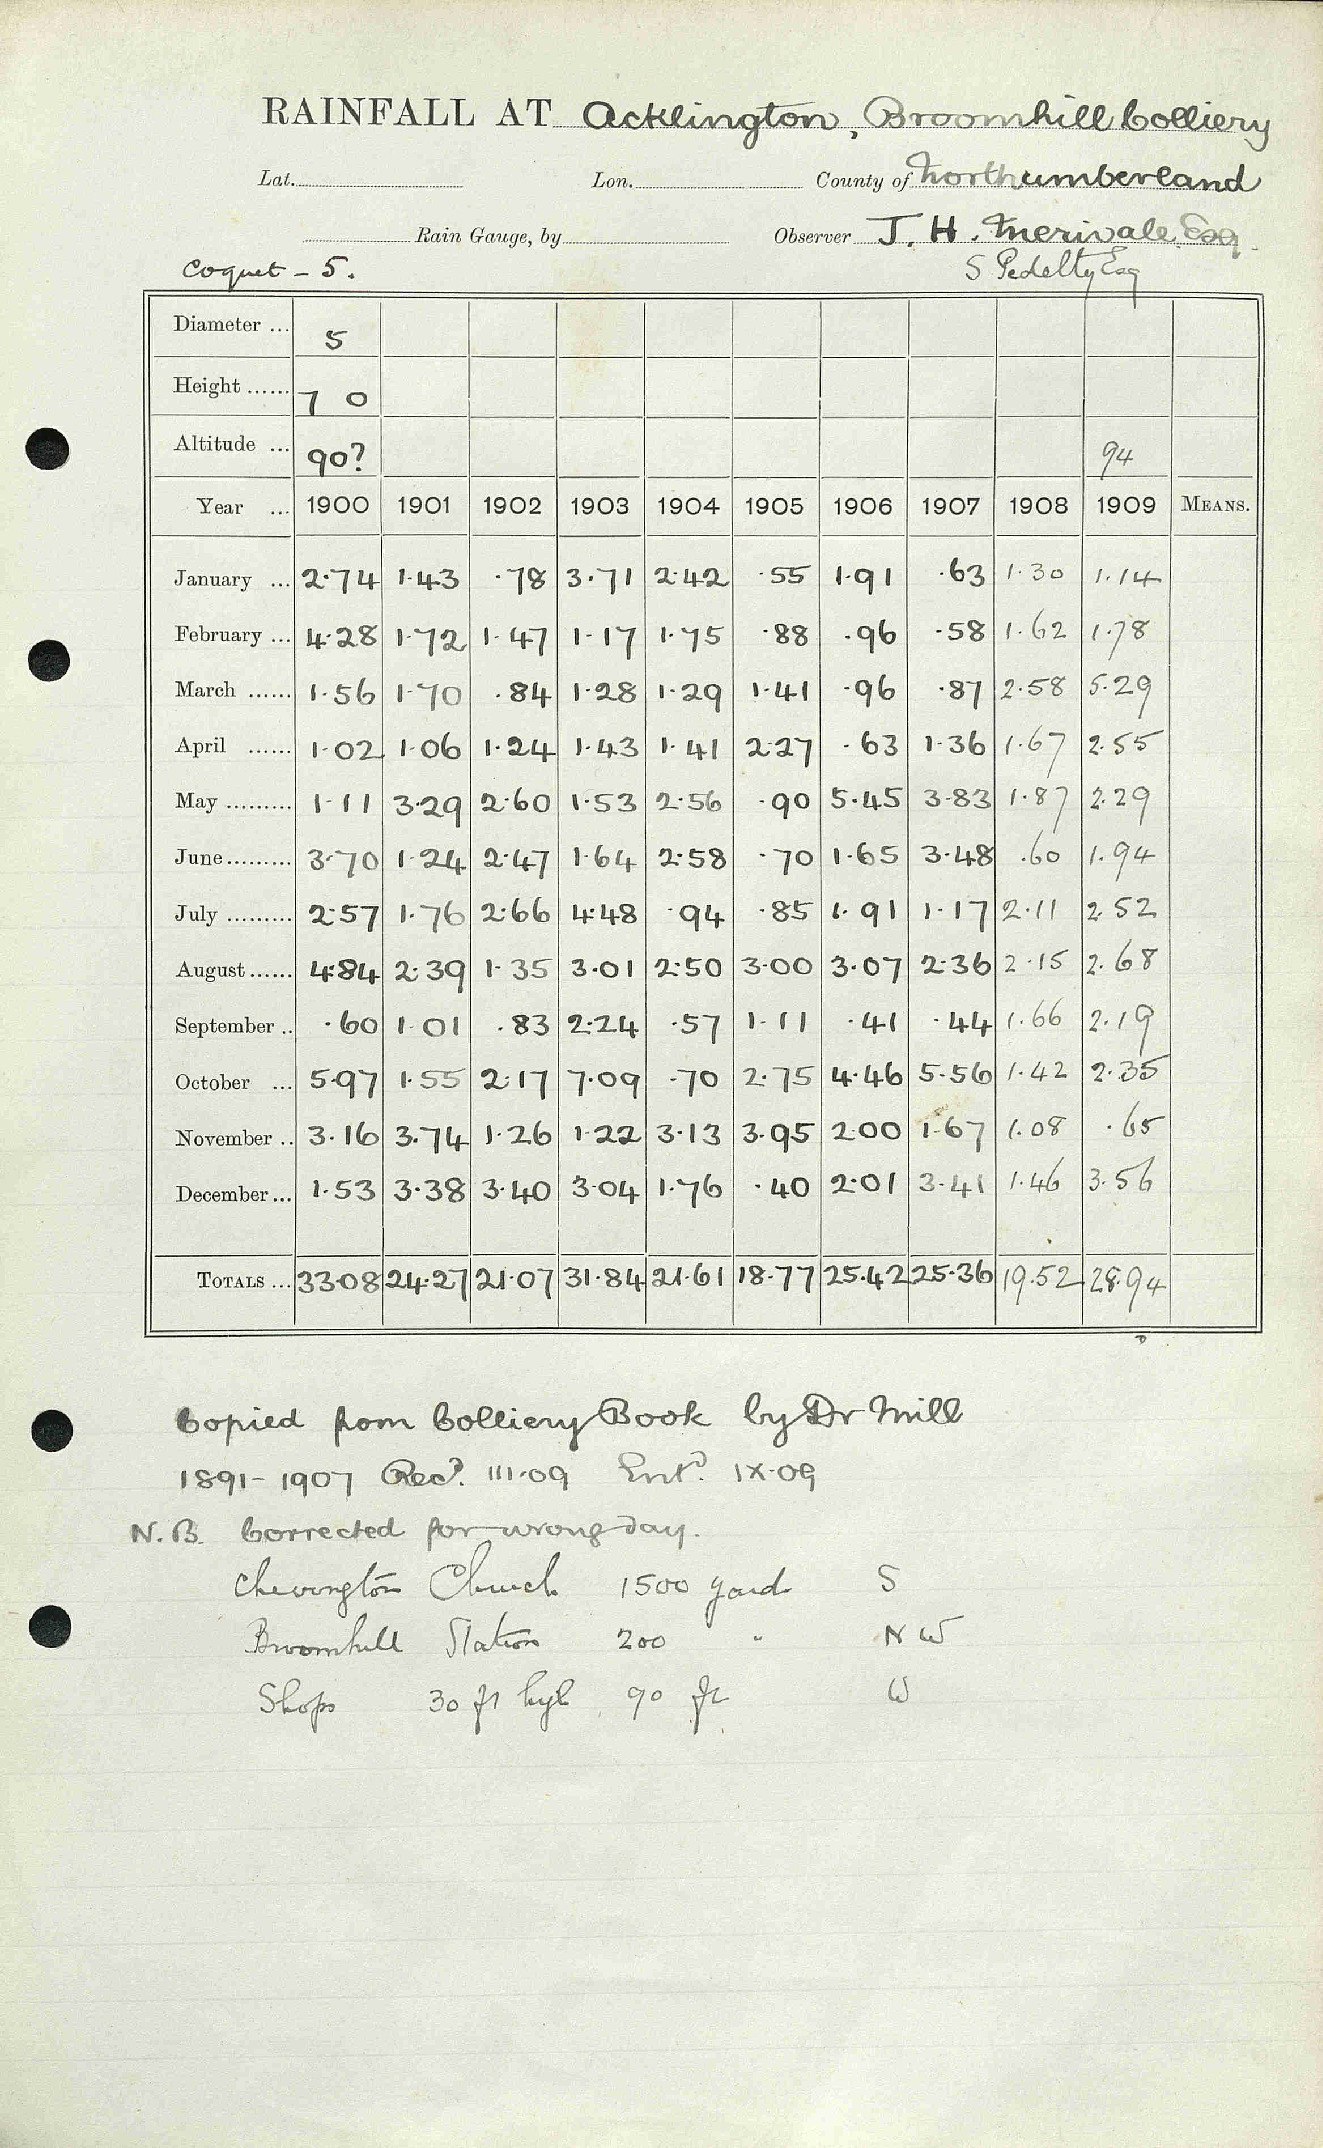 RAINFALL AT Acklington, Broomhill Colliery
Lat. Lon. County of Northumberland
Rain Gauge, by Observer J. H. Merivale Esq.
Coquet - 5. S Pedelty Esq
Diameter ... 5
Height ...... 7 0
Altitude ... 90? 94
Year ... 1900 1901 1902 1903 1904 1905 1906 1907 1908 1909 MEANS.
January ... 2.74 1.43 .78 3.71 2.42 .55 1.91 .63 1.30 1.14
February ... 4.28 1.72 1.47 1.17 1.75 .88 .96 .58 1.62 1.78
March ...... 1.56 1.70 .84 1.28 1.29 1.41 .96 .87 2.58 5.29
April ...... 1.02 1.06 1.24 1.43 1.41 2.27 .63 1.36 1.67 2.55
May ......... 1.11 3.29 2.60 1.53 2.56 .90 5.45 3.83 1.87 2.29
June......... 3.70 1.24 2.47 1.64 2.58 .70 1.65 3.48 .60 1.94
July ......... 2.57 1.76 2.66 4.48 .94 .85 1.91 1.17 2.11 2.52
August...... 4.84 2.39 1.35 3.01 2.50 3.00 3.07 2.36 2.15 2.68
September .. .60 1.01 .83 2.24 .57 1.11 .41 .44 1.66 2.19
October ... 5.97 1.55 2.17 7.09 .70 2.75 4.46 5.56 1.42 2.35
November .. 3.16 3.74 1.26 1.22 3.13 3.95 2.00 1.67 1.08 .65
December ... 1.53 3.38 3.40 3.04 1.76 .40 2.01 3.41 1.46 3.56
TOTALS ... 33.08 24.27 21.07 31.84 21.61 18.77 25.42 25.36 19.52 28.94
Copied from Colliery Book by Dr Mill
1891-1907 Recd. III.09 Entd. IX.09
N.B. Corrected for wrong day.
Chevington Church 1500 yards S
Broomhill Station 200 " N W
Shops 30 ft high 90 ft W